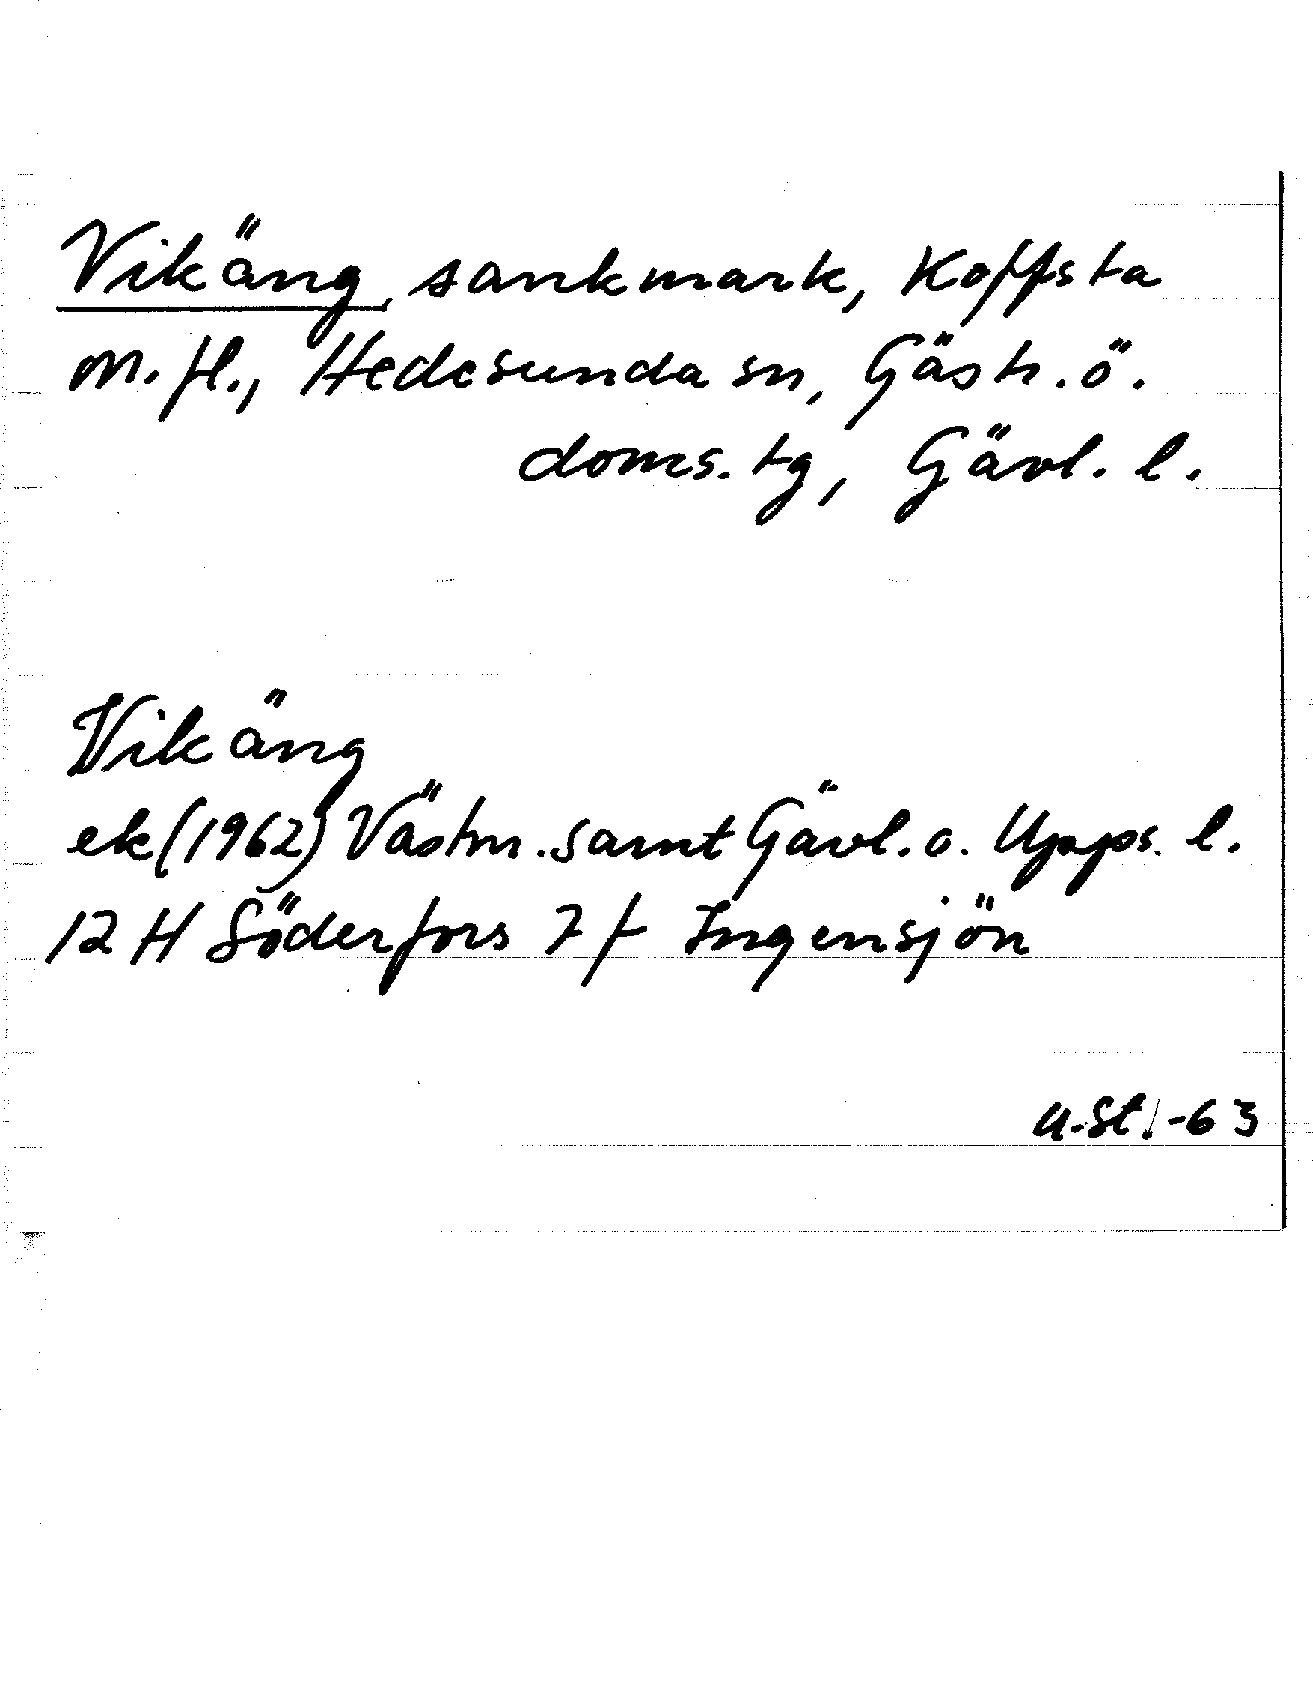 Vikäng, sankmark, Koffsta
m.fl., Hedesunda sn, Gästr. ö.
doms. tg, Gävl. l.
Vikäng
ek (1962) Västm. samt Gävl. o. Upps. l.
12 H Söderfors 7 f Ingensjön
U.St. -63